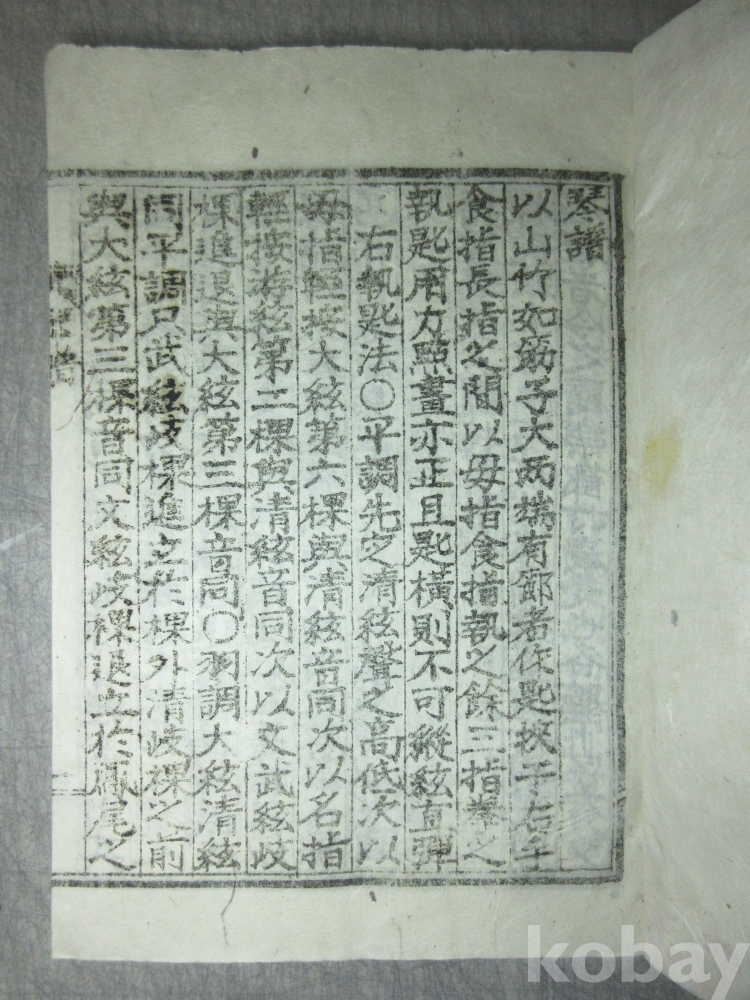 琴譜
以山竹如筯子大兩端有節者作匙挾于右手
食指長指之間以毋指食指執之餘三指拳之
執匙用力點畫亦正且匙橫則不可縱絃直彈
右執匙法○平調先定清絃聲之高低次以
毋指輕按大絃第六棵與清絃音同次以名指
輕按遊絃第二棵與清絃音同次以文武絃歧
棵進退與大絃第三棵音同○羽調大絃清絃
同平調只武絃歧棵進立於棵外清歧棵之前
與大絃第三棵音同文絃歧棵退立於鳳尾之
kobay